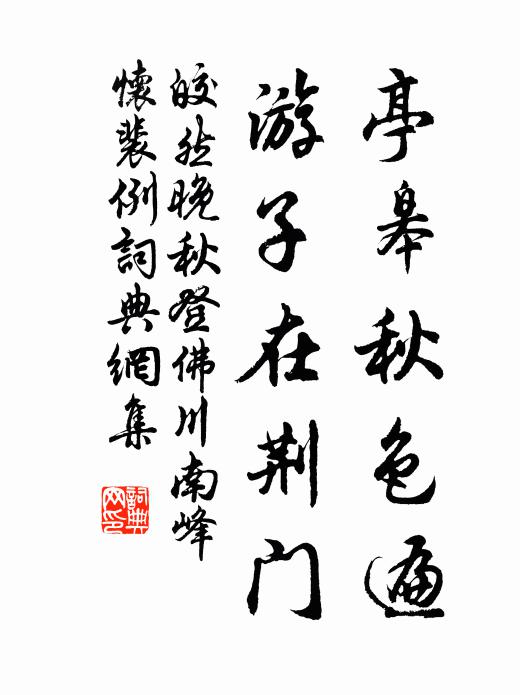 亭皋秋色遍
游子在荆门
皎然晚秋登佛川南峰
懷裴例詞典網集
詞典网印